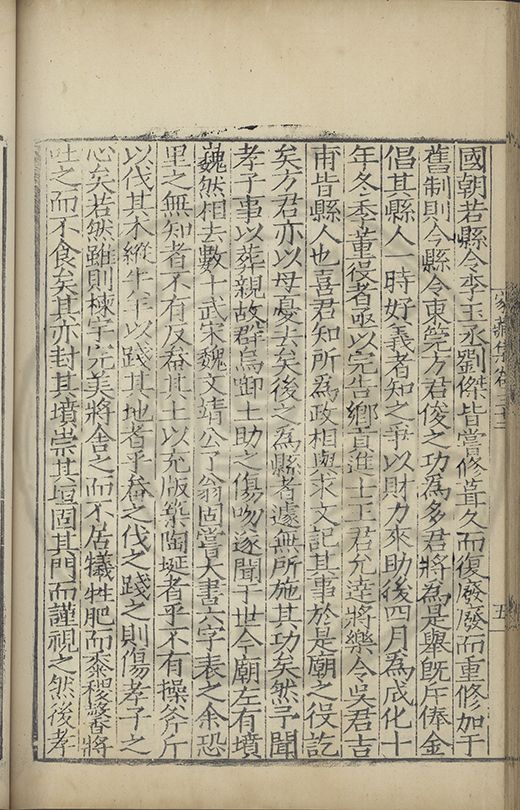 國朝若縣令李玉丞劉傑皆嘗修葺久而復廢廢而重修加于
舊制則今縣令東筦方君俊之功為多君將為是舉旣斥俸金
倡其縣人一時好義者知之爭以財力來助後四月為成化十
年冬季董役者亟以完告鄉貢進士王君允逵將樂令吳君吉
甫皆縣人也喜君知所為政相與求文記其事於是廟之役訖
矣方君亦以母憂去矣後之為縣者遽無所施其功矣然予聞
孝子事以葬親故群烏啣土助之傷吻逐聞于世今廟左有墳
巍然相去數十武宋魏文靖公了翁固嘗大書六字表之余恐
里之無知者不有反畚其土以充版築陶埏者乎不有操斧斤
以伐其木縱牛羊以踐其地者乎畚之伐之踐之則傷孝子之
心矣若然雖則棟宇完美將舍之而不居犧牲肥而黍稷馨將
吐之而不食矣其亦封其墳崇其垣固其門而謹視之然後孝